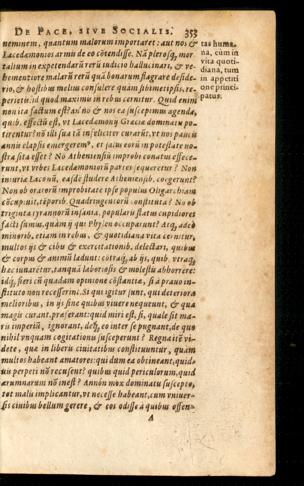 DE PACE, SIVE SOCIALIS. 353
neminem, quantum malorum importaret: aut nos &
Lacedæmonios armis de eo cōtendisse. Nā plerosq; mor-
talium in expetendarũ rerũ iudicio hallucinari, & ve-
hementiore malarũ rerũ quã bonarum flagrare deside-
rio, & hostibus melius consulere quàm sibimetipsis, re-
perietis: id quod maximum in rebus cernitur. Quid enim
non ita factum est? an nō & nos ea suscepimus agenda,
quib. effectũ est, vt Lacedæmonij Græcia dominatu po-
tirentur? nō illi sua tā infeliciter curarũt, vt nos paucis
annis elapsis emergerem⁹, et salus eorũ in potestate no-
stra sita esset? Nō Atheniensiũ improbi conatus effece-
runt, vt vrbes Lacedæmoniorũ partes sequerētur? Non
iniuria Laconũ, easdē studere Atheniēsib. coegerunt?
Non ob oratorũ improbitatē ipse populus Oligarchiam
cōcupiuit, à
quadringentorũ constituta? Nō ob
triginta tyrannorũ insania, popularis status cupidiores
facti sumus, quàm ij qui Phylen occuparunt? Atq; adeò
minorib. etiam in rebus, & quotidiana vita cernitur,
multos ijs & cibis & exercitationib. delectari, quibus
& corpus & animũ lædunt: cōtraq́; ab ijs, quib. vtraq;
hæc iuuarētur, tanquã laboriosis & molestis abhorrere:
idq́; fieri cũ quadam opinione cōstantiæ, si à prauo in-
stituto non recesserint. Si qui igitur sunt, qui deteriora
melioribus, in ijs sine quibus viuere nequeunt, & quæ
magis curant, præferant: quid miri est, si, quale sit ma-
ris imperiũ, ignorant, deq́; eo inter se pugnant, de quo
nihil vnquam cogitationis susceperunt? Regna itē vi-
dete, quæ in liberis ciuitatibus constituuntur, quàm
multos habeant amatores: qui dum ea obtineant, quid-
uis perpeti nō recusent? quibus quid periculorum, quid
ærumnarum nō inest? Annōn mox dominatu suscepto,
tot malis implicantur, vt necesse habeant, cum vniuer-
sis ciuibus bellum gerere, & eos odisse à quibus offen-
A
tas huma-
na, cùm in
vita quoti-
diana, tum
in appetiti
one princi-
patus.